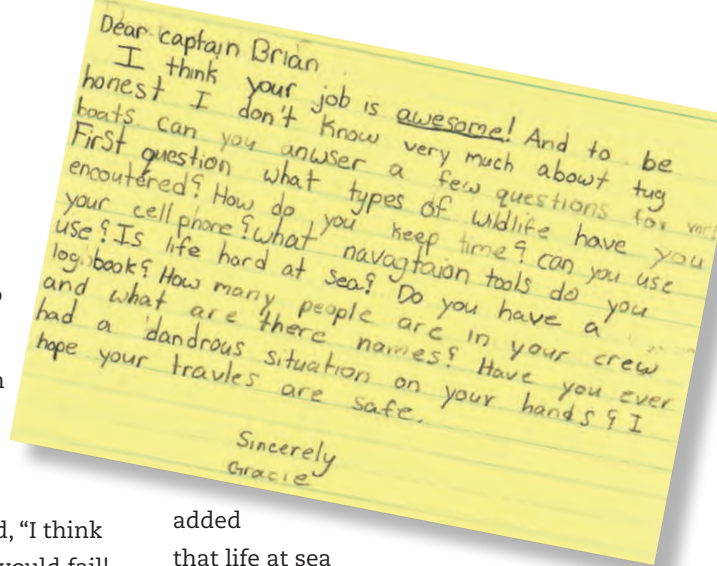 Dear captain Brian
I think your job is awesome! And to be
honest I don't know very much abowt tug
boats can you anwser a few questions for me!
First question what types of wildlife have you
encoutered? How do you keep time? can you use
your cell phone? what navagtaion tools do you
use? Is life hard at sea? Do you have a
log book? How many people are in your crew
and what are there names? Have you ever
had a dandrous situation on your hands? I
hope your travles are safe.
Sincerely
Gracie
d, "I think
would fail!
added
that life at sea